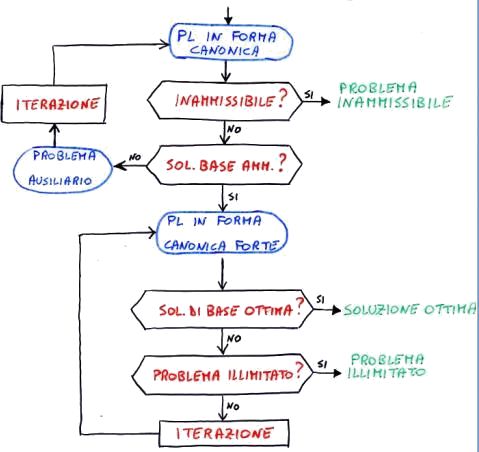 PL IN FORMA
CANONICA
ITERAZIONE
INAMMISSIBILE?
SI
PROBLEMA
INAMMISSIBILE
NO
PROBLEMA
AUSILIARIO
NO
SOL. BASE AMM.?
SI
PL IN FORMA
CANONICA FORTE
SOL. DI BASE OTTIMA?
SI
SOLUZIONE OTTIMA
NO
PROBLEMA ILLIMITATO?
SI
PROBLEMA
ILLIMITATO
NO
ITERAZIONE